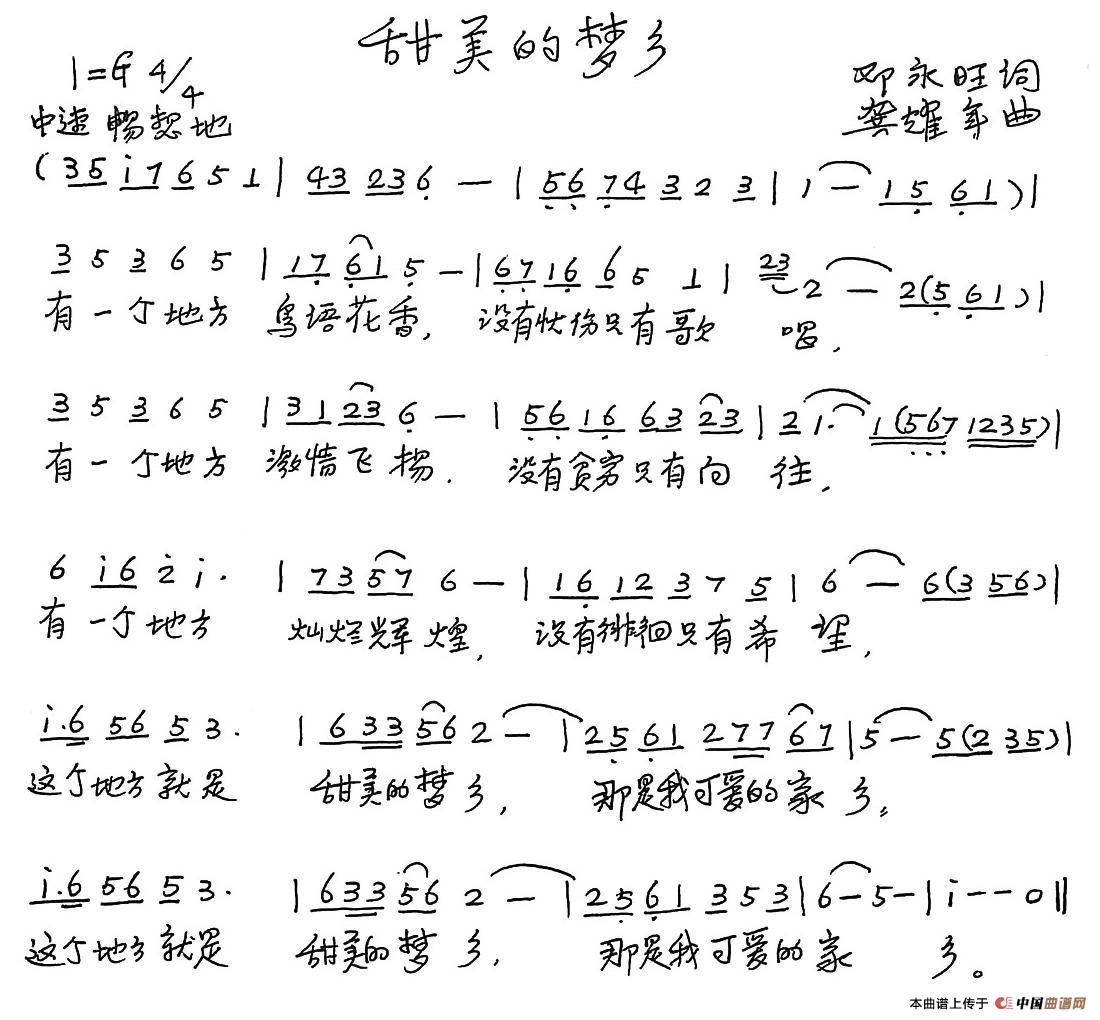 甜美的梦乡
1=G 4/4
邓永旺词
中速 畅想地
龚耀年曲
(35 i7 6 5 1 | 43 23 6 — | 56 74 3 2 3 | 1 — 15 61 ) |
3 5 3 6 5 | 17 61 5 — | 67 16 6 5 1 | 23 2 — 2(5 61 ) |
有一个地方 鸟语花香, 没有忧伤只有歌 唱,
3 5 3 6 5 | 31 23 6 — | 56 16 63 23 | 2 1. 1(567 1235) |
有一个地方 激情飞扬. 没有贫穷只有向 往,
6 i6 2 i. | 73 57 6 — | 16 12 3 7 5 | 6 — 6(3 56) |
有一个地方 灿烂辉煌, 没有徘徊只有希 望,
i.6 56 5 3. | 633 56 2 — | 25 61 277 67 | 5 — 5(2 35) |
这个地方就是 甜美的梦乡, 那是我可爱的家 乡。
i.6 56 5 3. | 633 56 2 — | 25 61 3 5 3 | 6 — 5 — | i — — 0 ‖
这个地方就是 甜美的梦 乡, 那是我可爱的家 乡。
本曲谱上传于 中国曲谱网